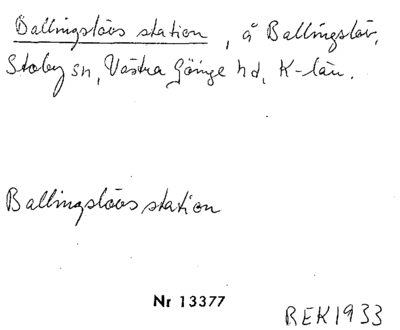 Ballingslövs station, å Ballingslöv,
Stoby sn, Västra Göinge hd, K-län.
Ballingslövs station
Nr 13377
REK1933